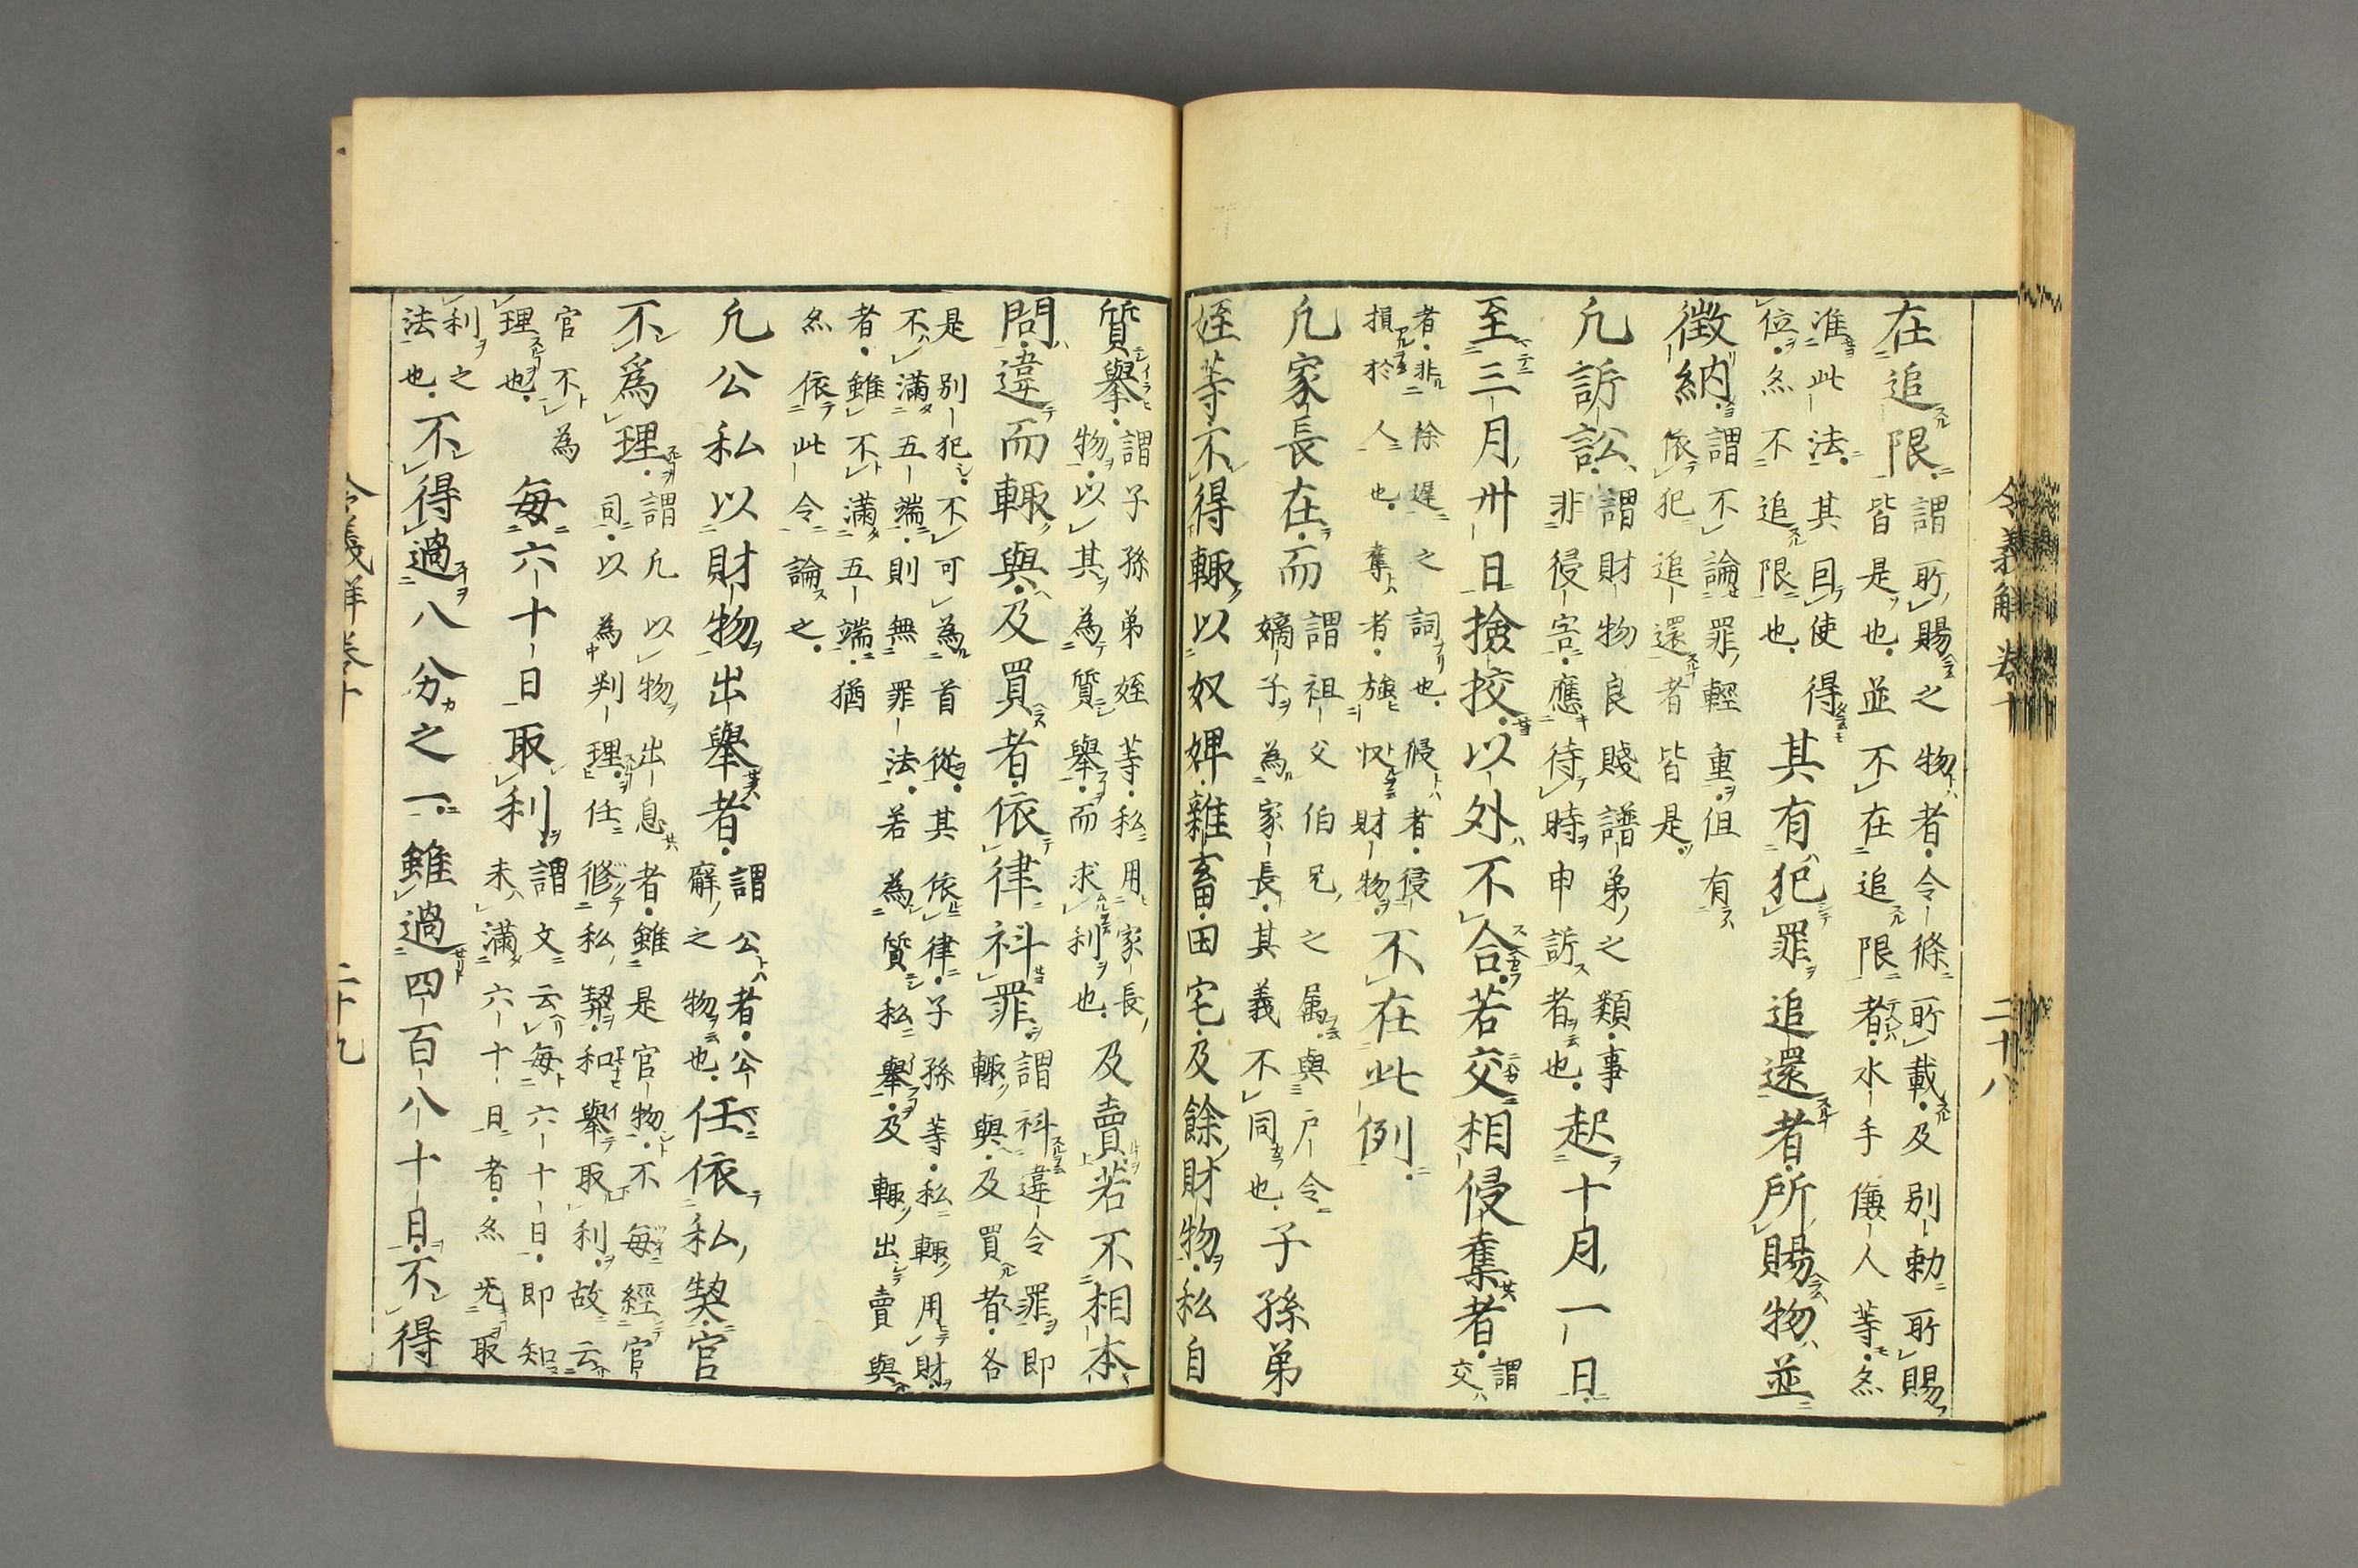 令義解巻十 二十八
在追限
謂所賜之物者令條所載及別勅所賜
皆是也並不在追限者水手傔人等然
准此法其目使得
位然不追限也
其有犯罪追還者所賜物並
徴納
謂不論罪輕重但有
依犯追還者皆是
凢訴訟
謂財物良賤譜弟之類事
非侵害應待時申訴者也
起十月一日
至三月卅日撿挍以外不合若交相侵奪者
謂
交
者非徐遅之詞也侵者侵
損於人也奪者強収財物
不在此例
凢家長在而
謂祖父伯兄之属與戸令
嫡子為家長其義不同也
子孫弟
姪等不得輙以奴婢雜畜田宅及餘財物私自
質擧
謂子孫弟姪等私用家長
物以其為質擧而求利也
及賣若不相本
問違而輙與及買者依律科罪
謂科違令罪即
輙與及買者各
是別犯不可為首從其依律子孫等私輙用財
不滿五端則無罪法若為質私擧及輙出賣與
者雖不滿五端猶
然依此令論之
凢公私以財物出擧者
謂公者公
廨之物也
任依私契官
不為理
謂凢以物出息者雖是官物不毎經官
司以為判理任修私契和擧取利故云
官不為
理也
毎六十日取利
謂文云毎六十日即知
未滿六十日者然旡取
利之
法也
不得過八分之一雖過四百八十日不得
令義解巻十 二十九